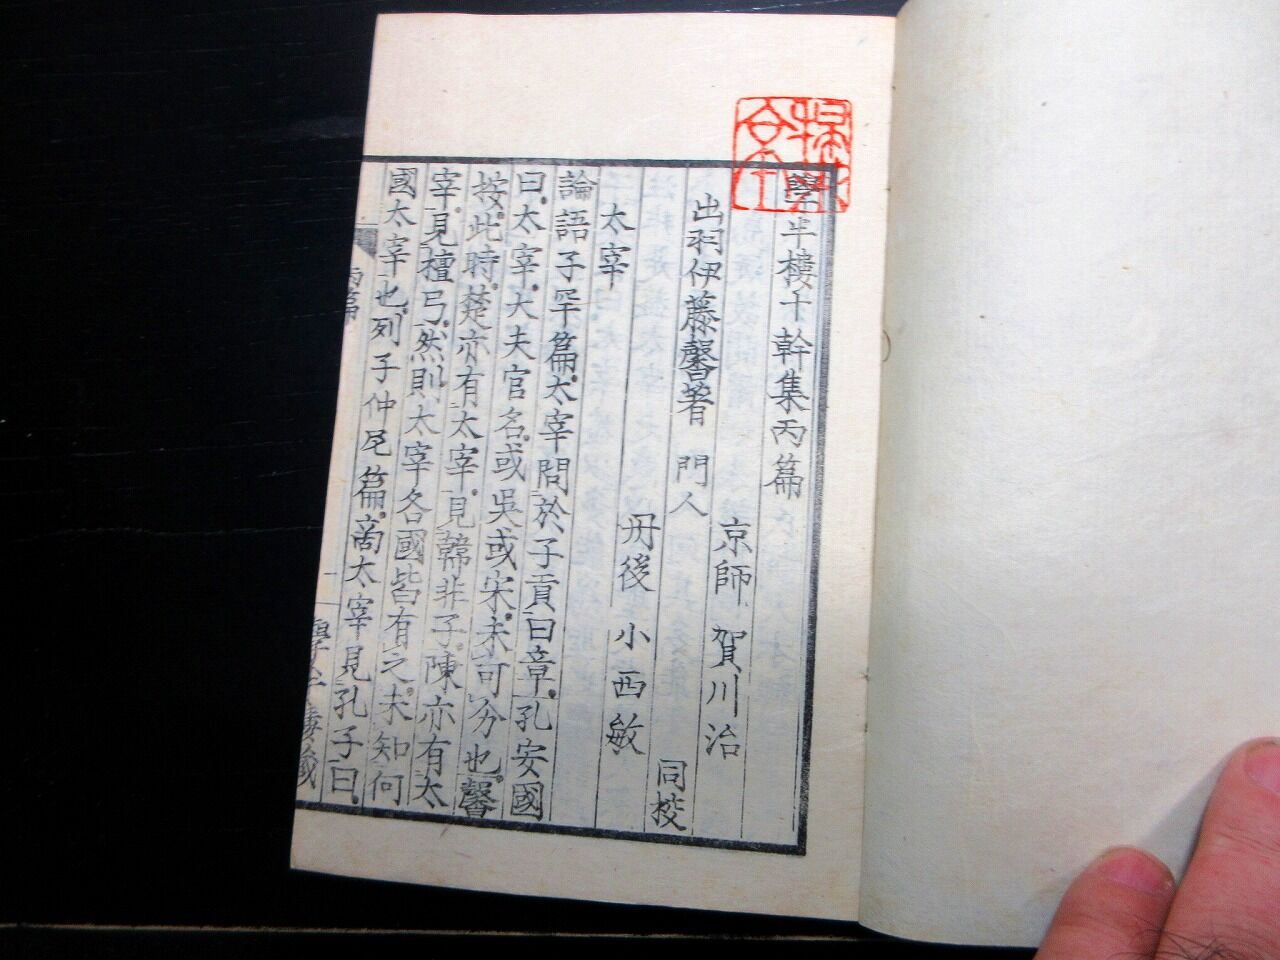 學半樓十幹集丙篇
京師 賀川治
出羽伊藤馨著 門人
同挍
丹後 小西敏
太宰
論語子罕篇太宰問於子貢曰章孔安國
曰太宰大夫官名或吳或宋未可分也馨
按此時楚亦有太宰見韓非子陳亦有太
宰見檀弓然則太宰各國皆有之未知何
國太宰也列子仲尼篇商太宰見孔子曰
丙篇
學半樓藏